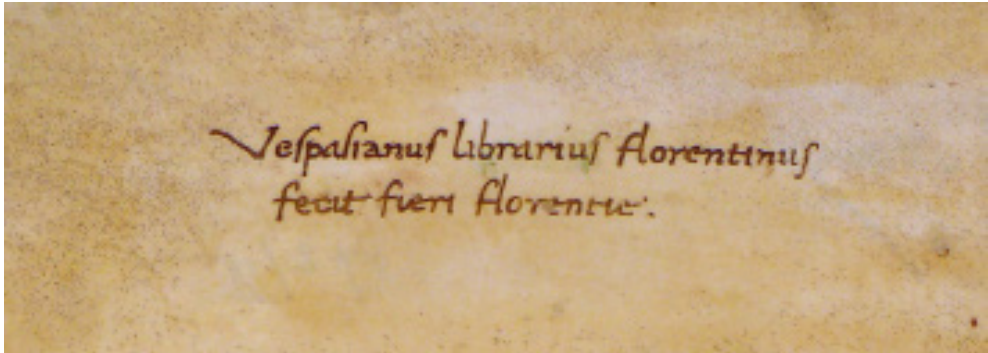 Vespasianus librarius florentinus
fecit fieri florentie.